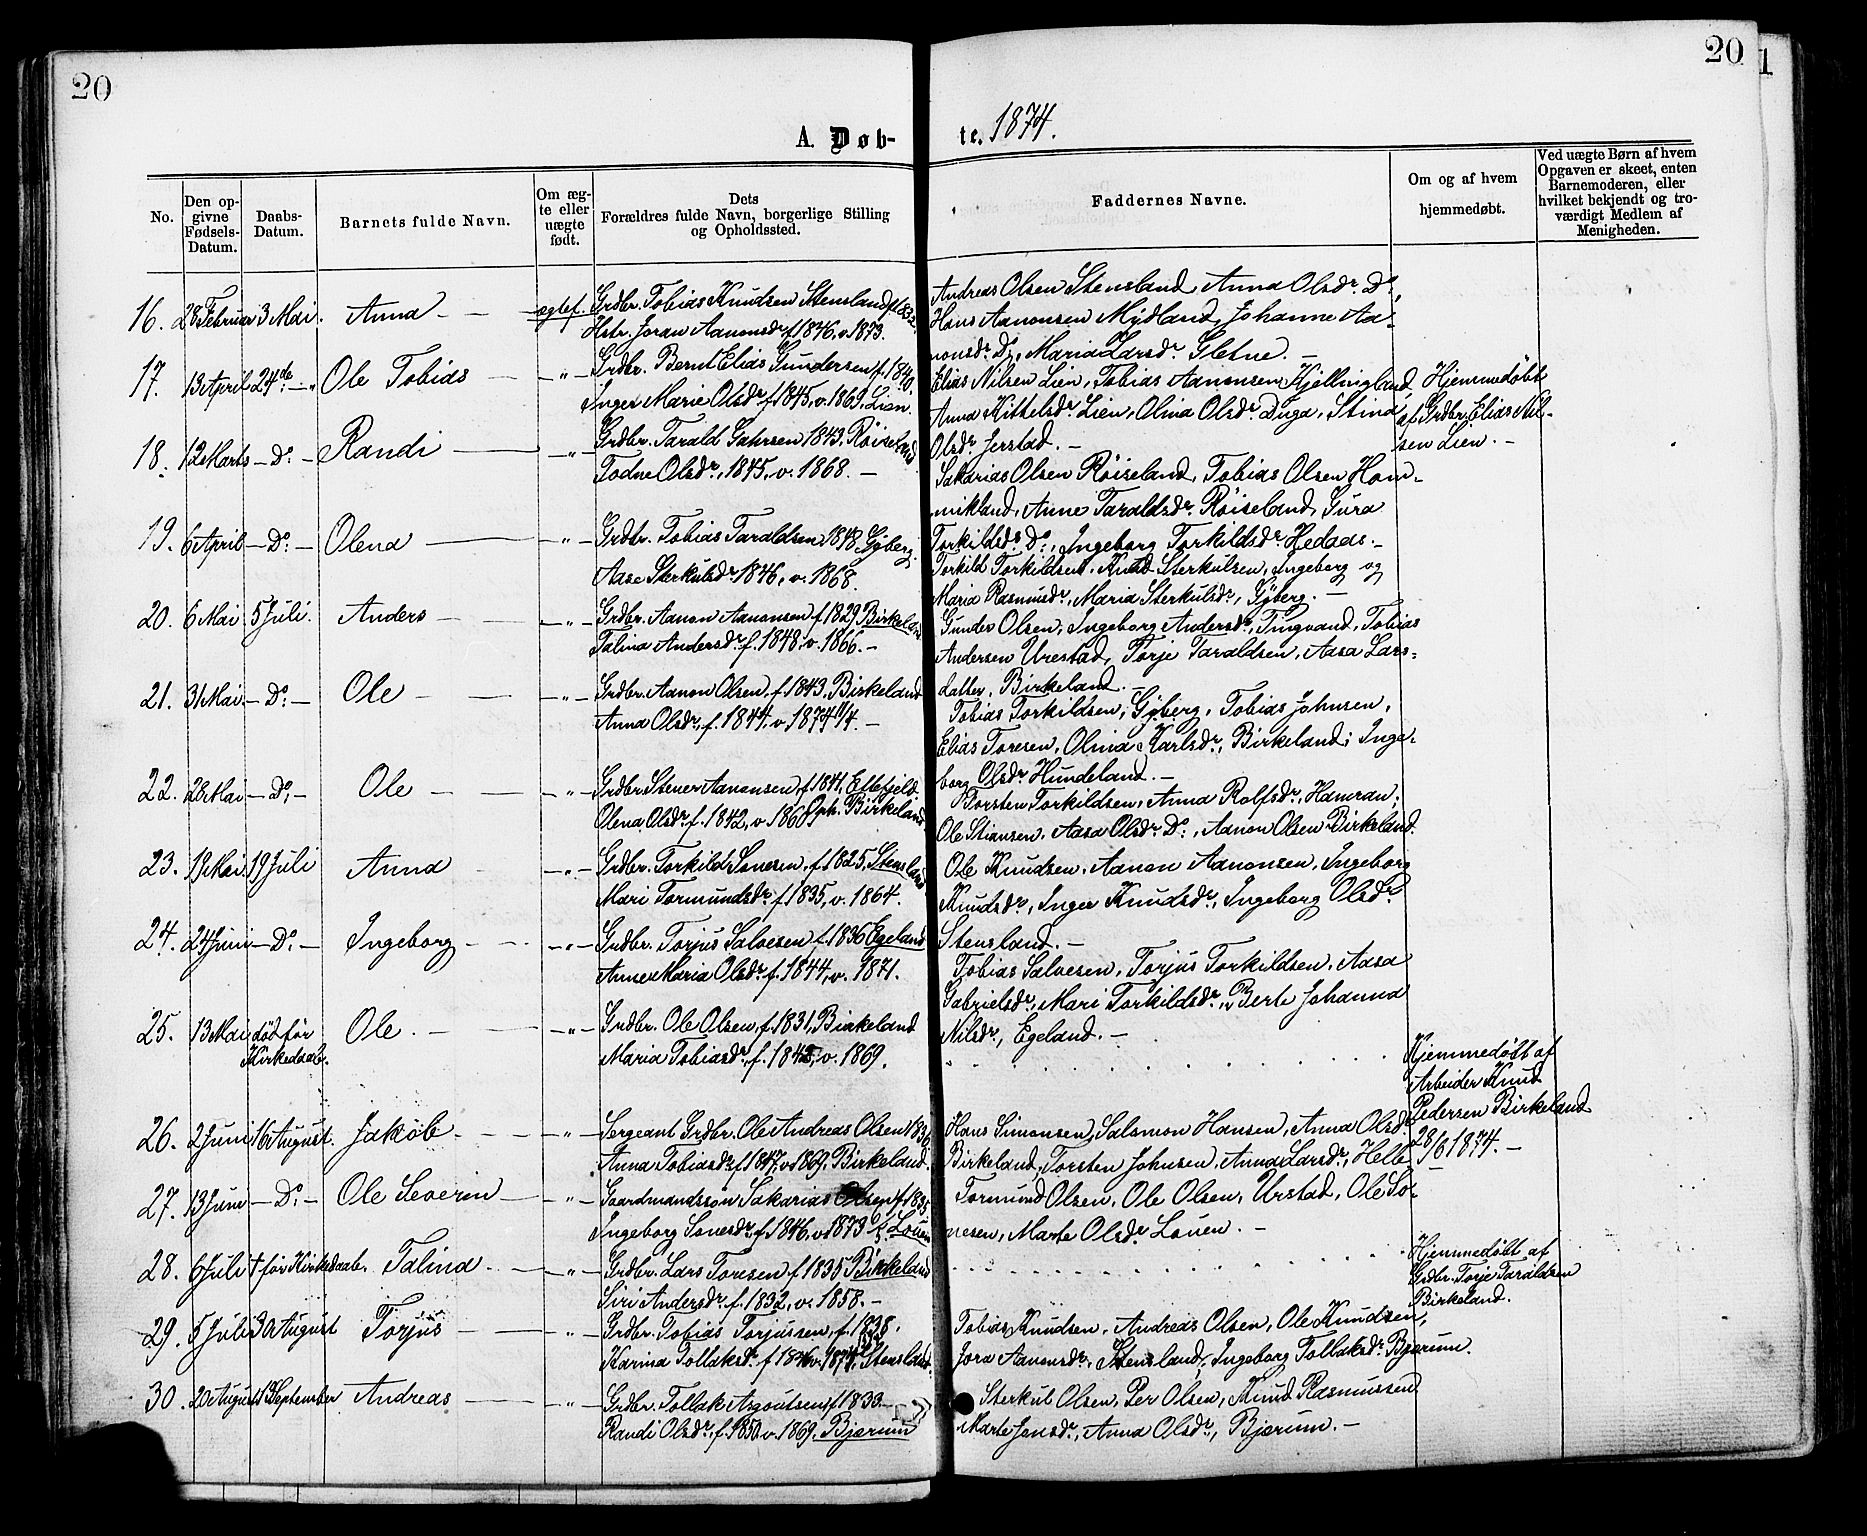 20
20
1
A. Døb-
te. 1874.
No.
Den op-
givne
Fødsels-
Datum.
Daabs-
Datum.
Barnets fulde Navn.
Om æg-
te eller
uægte
født.
Dets
Forældres fulde Navn, borgerlige Stilling
og Opholdssted.
Faddernes Navne.
Om og af hvem
hjemmedøbt.
Ved uægte Børn af hvem
Opgaven er skeet, enten
Barnemoderen, eller
hvilket bekjendt og tro-
værdigt Medlem af
Menigheden.
16. 28 Februar 3 Mai. Anna — — ægtef. Grdbr. Tobias Knudsen Stensland f. 1832.
Hstr. Joran Aanonsdr. f 1846, v. 1873.
Andreas Olsen Stensland, Anna Olsdr. Do,
Hans Aanonsen Mydland, Johanne Aa-
nonsdr. Do, Maria Larsdr. Sletne. —
17. 13 April 24de — Ole Tobias — — „ — Grdbr. Bernt Elias Gundersen f. 1840,
Inger Marie Olsdr. f. 1845, v. 1869, Lien.
Elias Nilsen Lien, Tobias Aanonsen Kjellingland,
Anna Kittelsdr. Lien, Olina Olsdr. Duga, Stina
Olsdr. Jerstad. —
Hjemmedøbt
af Grdbr. Elias Nil-
sen Lien. —
18. 12 Marts — Do. — Randi — — „ — Grdbr. Tarald Gahrsen 1843, Røiseland
Todne Olsdr., 1845, v. 1868. —
Sakarias Olsen Røiseland, Tobias Olsen Hom-
mikland, Anne Taraldsdr. Røiseland, Gura
Torkildsdr. Do, Ingeborg Torkildsdr. Hedaas. —
19. 6 April — Do: — Olena — — „ — Grdbr. Tobias Taraldsen 1848 Gyberg.
Aase Sterkulsdr. 1846, v. 1868.
Torkild Torkildsen, Knud Sterkulsen, Ingeborg og
Maria Rasmusdr., Maria Sterkulsdr., Gyberg. —
20. 6 Mai 5 Juli. Anders — — „ — Grdbr. Aanon Aanonsen f 1829 Birkeland
Talina Andersdr. f. 1848, v. 1866. —
Gunder Olsen, Ingeborg Andersdr., Tingvand, Tobias
Andersen Urestad, Torje Taraldsen, Aasa Lars-
datter, Birkeland. —
21. 31 Mai. — Do. — Ole — — „ — Grdbr. Aanon Olsen, f. 1843, Birkeland
Anna Olsdr., f. 1844, v. 1874 11/4. —
Tobias Torkildsen, Gyberg, Tobias Johnsen,
Elias Toresen, Olina Karlsdr., Birkeland; Inge-
borg Olsdr. Hundeland. —
22. 28 Mai — Do; — Ole — — „ — Grdbr Stener Aanonsen f 1841, Eftefjeld
Olena Olsdr. f. 1842, v 1868 Oph. Birkeland
Torsten Torkildsen, Anna Rolfsdr., Hamran;
Ole Stiansen, Aasa Olsdr. Do:, Aanon Olsen Birkeland.
23. 19 Mai. 19 Juli Anna — „ — Grdbr. Torkild Sonesen, f. 1825, Stensland
Mari Tormundsdr. f 1835, v. 1864.
Ole Knudsen, Aanon Aanonsen, Ingeborg
Knudsdr., Inger Knudsdr., Ingeborg Olsdr.
Stensland. —
24. 24 Juni — Do. — Ingeborg — — „ — Grdbr. Torjus Salvesen f. 1836 Egeland
Anne Maria Olsdr. f. 1844, v. 1871.
Tobias Salvesen, Torjus Torkildsen, Aasa
Gabrielsdr., Mari Torkildsdr., Berte Johanna
Nilsdr., Egeland. —
25. 13 Mai død før
Kirkedaab. Ole. — — „ — Grdbr. Ole Olsen, f. 1831, Birkeland
Maria Tobiasdr., f. 1845, v. 1869.
Hjemmedøbt af
Arbeider Knud
Pedersen Birkeland
28/6 1874. —
26. 2 Juni 16 August. Jakob — — „ — Sergeant Grdbr. Ole Andreas Olsen 1836
Anna Tobiasdr. f 1847, v 1869, Birkeland.
Hans Simonsen, Salomon Hansen, Anna Olsdr.
Birkeland, Torsten Johnsen, Anna Larsdr., Helle
27. 13 Juni — Do. — Ole Severin — — „ — Gaardmandssøn Sakarias Olsen f 1835,
Ingeborg Sonesdr., f 1846, v 1873 Louen
Tormund Olsen, Ole Olsen, Urstad, Ole So-
nesen, Marte Olsdr. Louen. —
28. 6 Juli † før Kirkedaab. Talina — — „ — Grdbr. Lars Toresen f. 1835 Birkeland
Siri Andersdr. f. 1832, v. 1858. —
Hjemmedøbt af
Grdbr. Torje Taraldsen
Birkeland.
29. 5 Juli 30 August Torjus — — „ — Grdbr. Tobias Torjussen, f. 1838,
Karina Tollaksdr. f 1846 v. 1874, Stensland.
Tobias Knudsen, Andreas Olsen, Ole Knudsen,
Jora Aanonsdr., Stensland, Ingeborg Tollaksdr. Bjærum.
30. 20 August 13 September Andreas — — „ — Grdbr. Tollak Asgoutsen, f 1833.
Randi Olsdr., f. 1850 v. 1869, Bjærum
Sterkul Olsen, Per Olsen, Knud Rasmussen
Marte Jensdr., Anna Olsdr., Bjærum. —